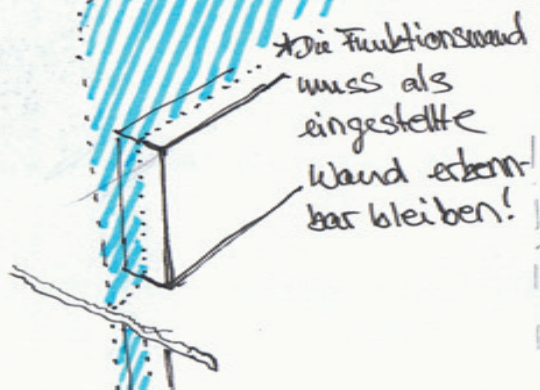 *Die Funktionswand
muss als
eingestellte
Wand erkenn-
bar bleiben!